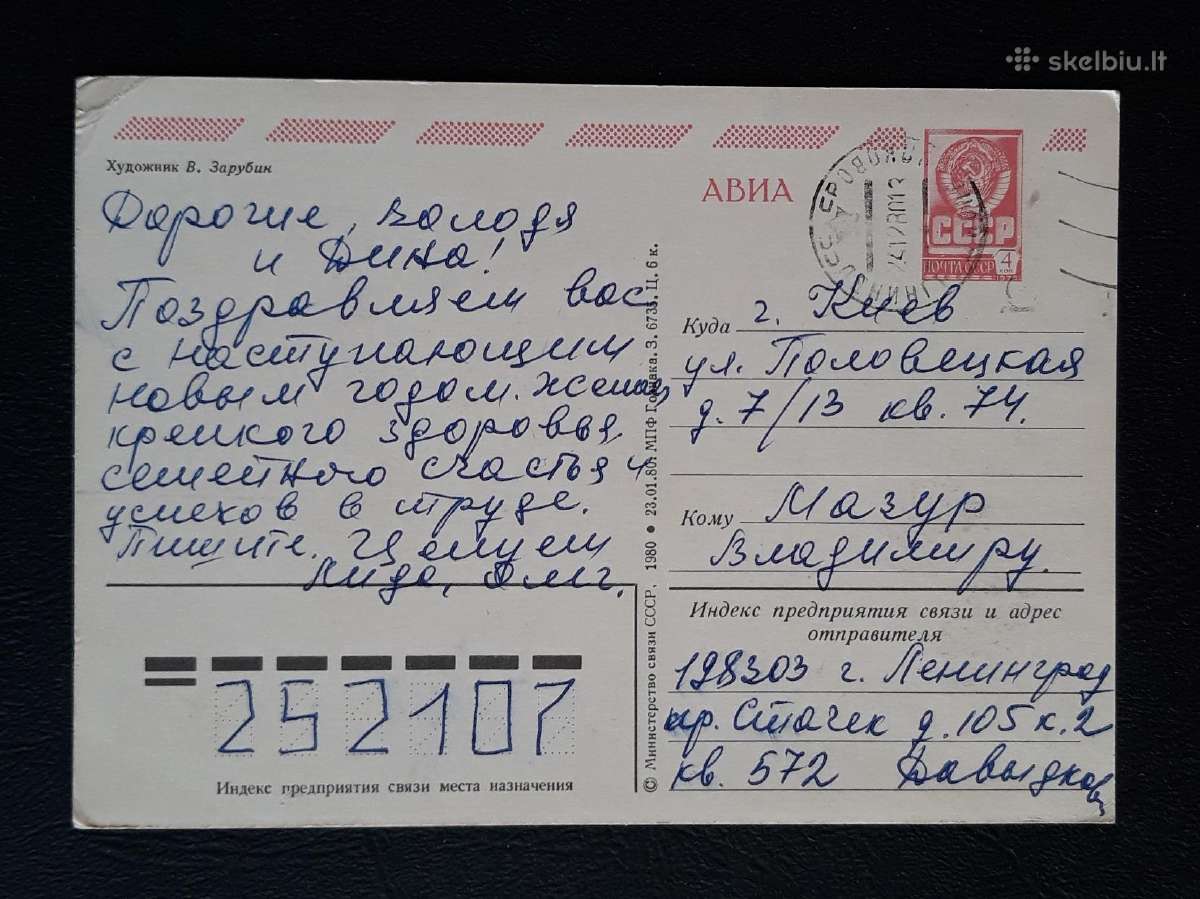 skelbiu.lt
Художник В. Зарубин
АВИА
СССР
ПОЧТА СССР
4
коп
Дорогие, Володя
и Дина!
Поздравляем вас
с наступающим
новым годом. Желаем
крепкого здоровья,
семейного счастья и
успехов в труде.
Пишите. Целуем
Лида, Олег.
252107
Индекс предприятия связи места назначения
© Министерство связи СССР, 1980 • 23.01.80. МПФ Гознака. З. 6735. Ц. 6 к.
Куда г. Киев
ул. Половецкая
д. 7/13 кв. 74.
Кому Мазур
Владимиру.
Индекс предприятия связи и адрес
отправителя
198303 г. Ленинград
пр. Стачек д. 105 к. 2
кв. 572 Давыдков